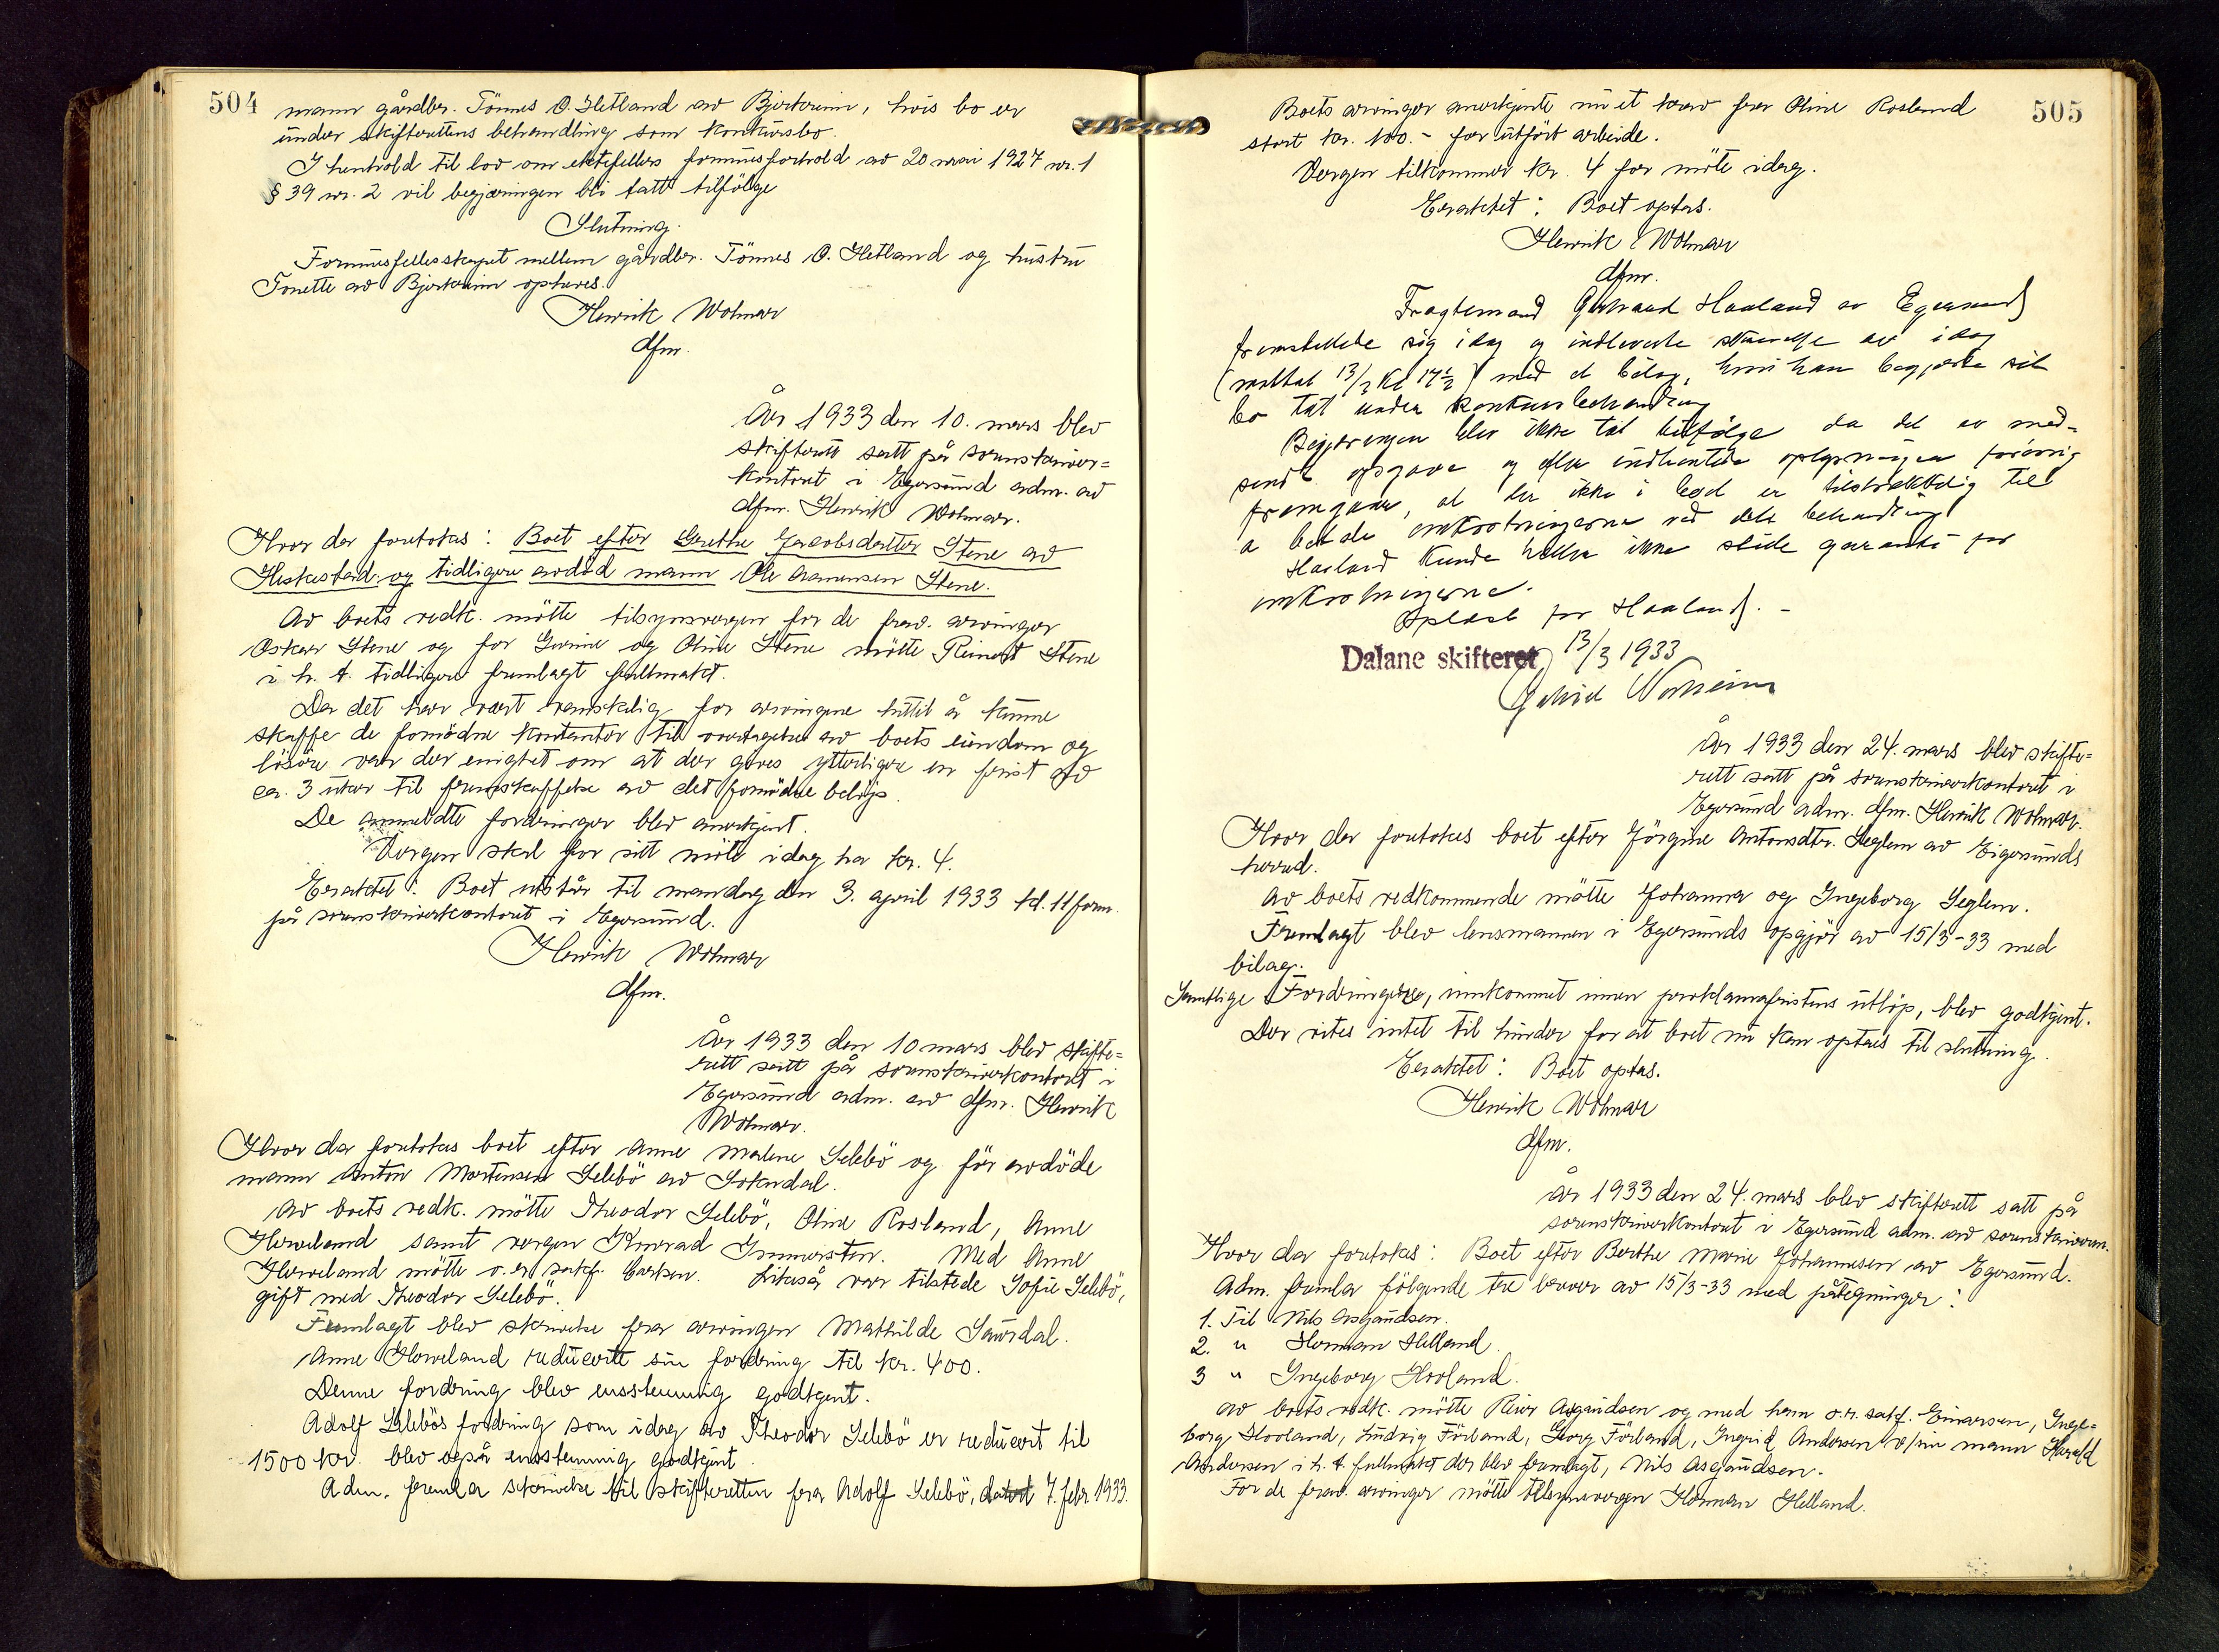 504
mann gårdbr. Tönnes O. Hetland av Bjerkreim, hvis bo er
under skifterettens behandling som konkursbo.
I henhold til lov om ektefellers formuesforhold av 20 mai 1927 nr. 1
§ 39 nr. 2 vil begjæringen bli tatt tilfölge
Slutning.
Formuesfellesskapet mellem gårdbr. Tönnes O. Hetland og hustru
Tonette av Bjerkreim opheves.
Henrik Wolmar
dfm.
År 1933 den 10. mars blev
skifterett satt på sorenskriver-
kontoret i Egersund adm. av
dfm. Henrik Wolmar.
Hvor da foretokes: Boet efter Grethe Jacobsdatter Stene av
Heskestad og tidligere avdöd mann Ole Aamensen Stene.
Av boets vedk. mötte tilsynsvergen for de frav. arvinger
Oskar Stene og for Gurine og Oline Stene mötte Reinert Stene
i h. t. tidligere fremlagt fullmakt.
Da det har vært vanskelig for arvingene hittil å kunne
skaffe de fornödne kontanter til overtagelse av boets eiendom og
lösöre var der enighet om at der gives ytterligere en frist på
ca. 3 uker til fremskaffelse av det fornödne belöp.
De anmeldte fordringer blev anerkjent.
Vergen skal for sitt möte idag ha kr. 4.
Eraktet: Boet utstår til mandag den 3. april 1933 kl. 11 form.
på sorenskriverkontoret i Egersund.
Henrik Wolmar
dfm.
År 1933 den 10 mars blev skifte-
rett satt på sorenskriverkontoret i
Egersund adm. av dfm. Henrik
Wolmar.
Hvor da foretokes boet efter Anne Malene Selebö og för avdöde
mann Anton Mortensen Selebö av Sokndal.
Av boets vedk. mötte Theodor Selebö, Oline Rosland, Anne
Howeland samt vergen Konrad Immerstein. Med Anne
Howeland mötte o.r. sakf. Carlsen. Likeså var tilstede Sofie Selebö,
gift med Theodor Selebö.
Fremlagt blev skrivelse fra arvingen Mathilde Saurdal.
Anne Howeland reducerte sin fordring til kr. 400.
Denne fordring blev enstemmig godkjent.
Adolf Selebös fordring som idag av Theodor Selebö er reducert til
1500 kr. blev også enstemmig godkjent.
Adm. fremla skrivelse til skifteretten fra Adolf Selebö, datert 7. febr 1933.
505
Boets arvinger anerkjente nu et krav fra Oline Rosland
stort kr. 100.- for utfört arbeide.
Vergen tilkommer kr. 4 for möte idag.
Eraktet: Boet optas.
Henrik Wolmar
dfm.
Fragtemand Gerhard Haaland av Egersund
fremstillede sig idag og indleverte skrivelse av idag
(mottat 13/3 Kl 14½) med et bilag, hvori han begjærte sit
bo tat under konkursbehandling
Begjæringen blev ikke tat tilfølge da det av med-
sendt opgave og efter indhentede oplysninger forövrig
fremgaar, at der ikke i boet er tilstrekkelig til
a betale omkostningerne ved dets behandling
Haaland kunde heller ikke stille garanti for
omkostningerne.
Oplæst for Haaland. -
Dalane skifteret 13/3 1933
År 1933 den 24. mars blev skifte-
rett satt på sorenskriverkontoret i
Egersund adm. dfm. Henrik Wolmar.
Hvor da foretokes boet efter Jörgine Antonsdtr. Seglem av Eigersunds
herred.
Av boets vedkommende mötte Johanna og Ingeborg Seglem.
Fremlagt blev lensmannen i Egersunds opgjör av 15/3-33 med
bilag.
Samtlige Fordringer, innkommet innen proklamafristens utlöp, blev godkjent.
Der vites intet til hinder for at boet nu kan optas til slutning.
Eraktet: Boet optas.
Henrik Wolmar
dfm.
År 1933 den 24. mars blev skifterett satt på
sorenskriverkontoret i Egersund adm. av sorenskriveren.
Hvor da foretokes: Boet efter Berthe Marie Johannesen av Egersund.
Adm. fremla fölgende tre brever av 15/3-33 med påtegninger:
1. Til Nils Asgaudsen.
2. " Herman Helland.
3 " Ingeborg Hovland.
Av boets vedk. mötte Reier Asgaudsen og med ham o.r. sakf. Einarsen, Inge-
borg Hovland, Ludvig Förland, Georg Förland, Ingrid Andersen v/sin mann Harald
Andersen i h. t. fullmakt der blev fremlagt, Nils Asgaudsen.
For de frav. arvinger mötte tilsynsvergen Herman Helland.